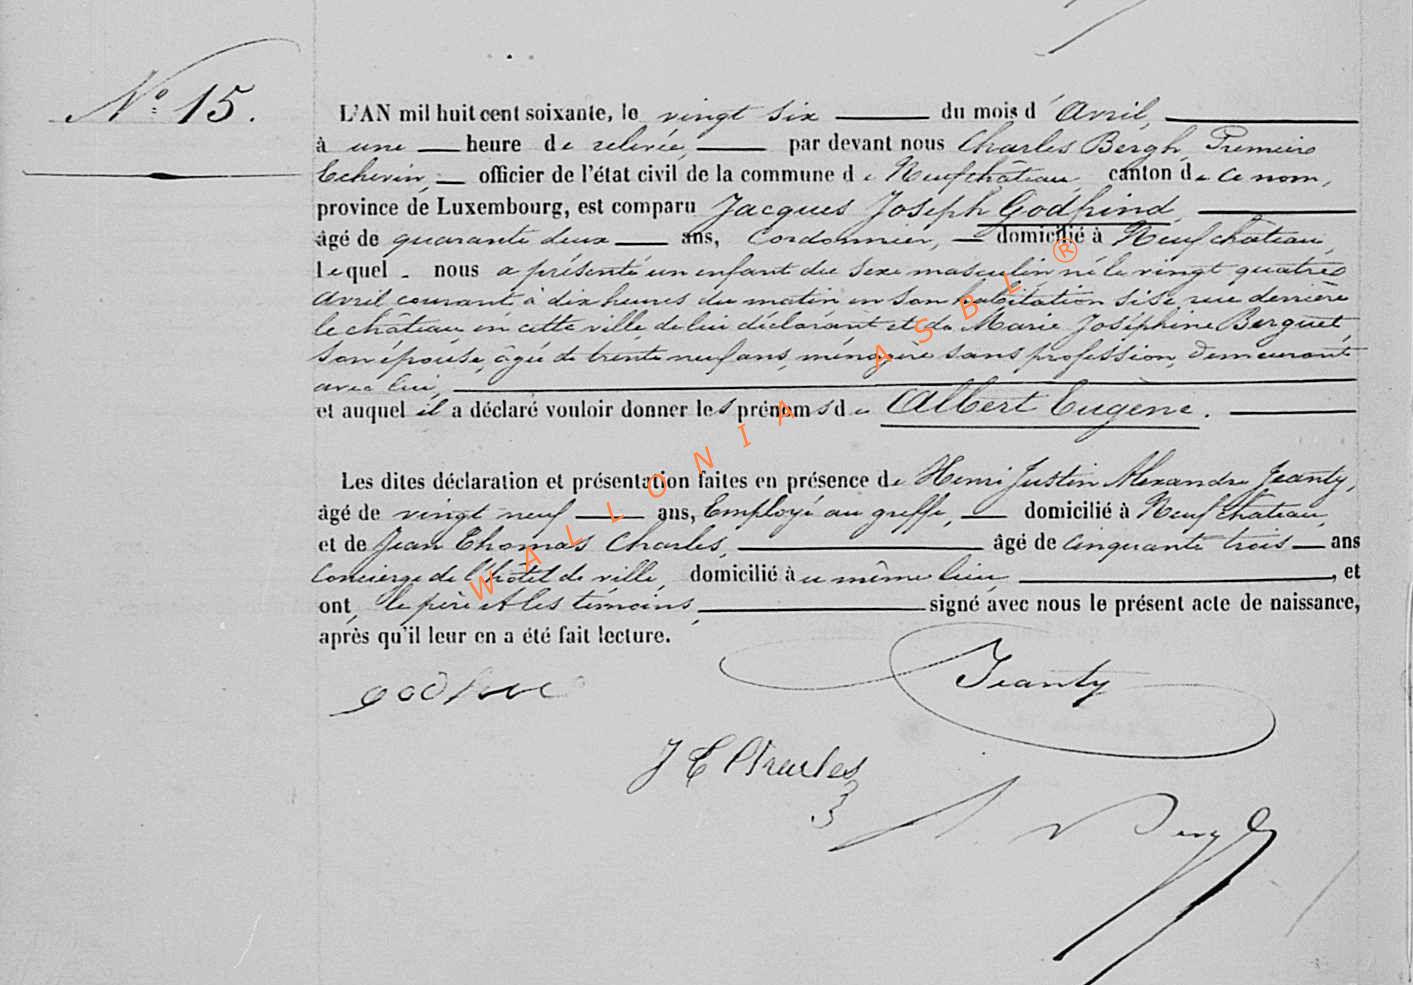 N° 15.
L'AN mil huit cent soixante, le vingt six du mois d'Avril,
à une heure de relevée, par devant nous Charles Bergh, Premier
Echevin, officier de l'état civil de la commune de Neufchâteau, canton de ce nom,
province de Luxembourg, est comparu Jacques Joseph Godfrind,
âgé de quarante deux ans, Cordonnier, domicilié à Neufchateau,
lequel nous a présenté un enfant du sexe masculin né le vingt quatre
Avril courant à dix heures du matin en son habitation sise rue derrière
le château en cette ville de lui déclarant et de Marie Joséphine Berguet,
son épouse, âgée de trente neuf ans, ménagère sans profession, demeurant
avec lui,
et auquel il a déclaré vouloir donner les prénoms de Albert Eugène.
Les dites déclaration et présentation faites en présence de Henri Justin Alexandre Jeanty,
âgé de vingt neuf ans, Employé au greffe, domicilié à Neufchateau,
et de Jean Thomas Charles, âgé de cinquante trois ans
Concierge de l'hôtel de ville, domicilié à ce même lieu, et
ont, le père et les témoins, signé avec nous le présent acte de naissance,
après qu'il leur en a été fait lecture.
Jeanty
J T Charles
WALLONIA ASBL ®